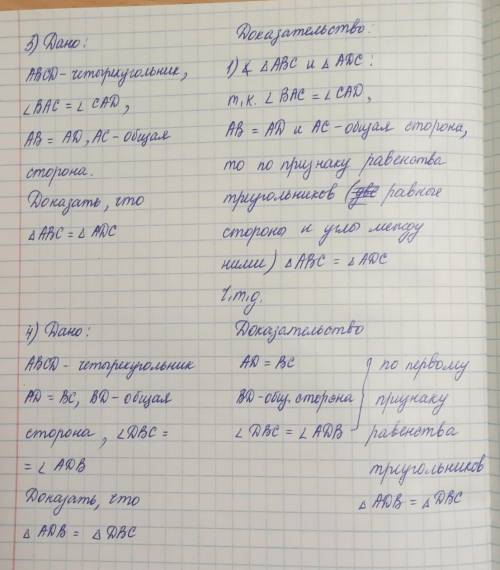 3) Дано:
ABCD - четырехугольник,
∠BAC = ∠CAD,
AB = AD, AC - общая
сторона.
Доказать, что
△ABC = △ADC
Доказательство:
1) ∡ △ABC и △ADC:
т.к. ∠BAC = ∠CAD,
AB = AD и AC - общая сторона,
то по признаку равенства
треугольников (две равные
стороны и углы между
ними) △ABC = △ADC
ч.т.д.
4) Дано:
ABCD - четырехугольник
AD = BC, BD - общая
сторона, ∠DBC =
= ∠ADB
Доказать, что
△ADB = △DBC
Доказательство
AD = BC
BD - общ. сторона
∠DBC = ∠ADB
по первому
признаку
равенства
треугольников
△ADB = △DBC